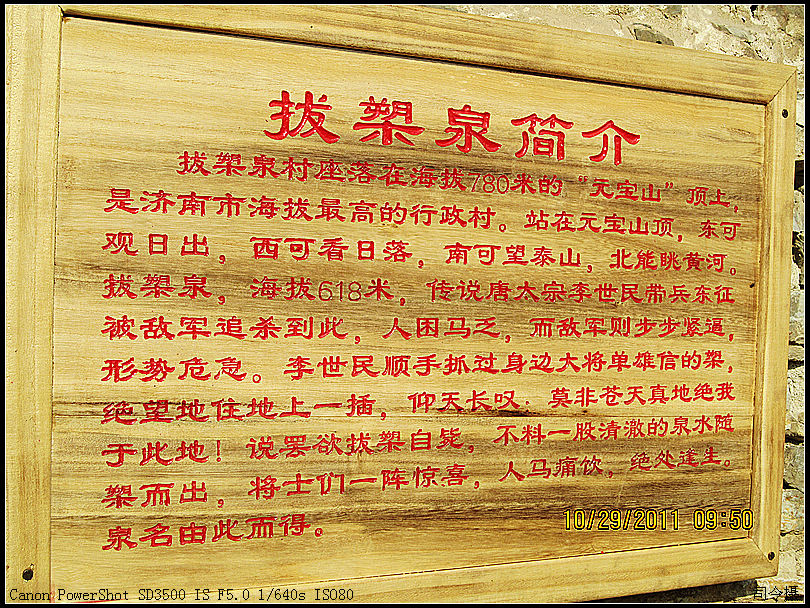 拔槊泉简介
拔槊泉村座落在海拔780米的“元宝山”顶上，
是济南市海拔最高的行政村。站在元宝山顶，东可
观日出，西可看日落，南可望泰山，北能眺黄河。
拔槊泉，海拔618米，传说唐太宗李世民带兵东征
被敌军追杀到此，人困马乏，而敌军则步步紧逼，
形势危急。李世民顺手抓过身边大将单雄信的槊，
绝望地往地上一插，仰天长叹：莫非苍天真地绝我
于此地！说罢欲拔槊自毙，不料一股清澈的泉水随
槊而出，将士们一阵惊喜，人马痛饮，绝处逢生。
泉名由此而得。
10/29/2011 09:50
Canon PowerShot SD3500 IS F5.0 1/640s ISO80
司令摄